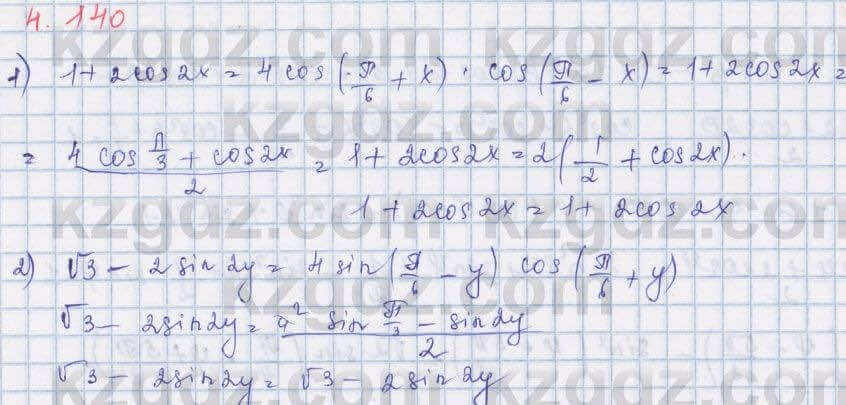 4.140
1) 1+2cos2x = 4cos(π/6 + x) · cos(π/6 − x) = 1+2cos2x =
= 4 (cos π/3 + cos2x)/2 = 1+2cos2x = 2(1/2 + cos2x).
1+2cos2x = 1+2cos2x
2) √3 − 2sin2y = 4sin(π/6 − y) cos(π/6 + y)
√3 − 2sin2y = 4² (sin π/3 − sin2y)/2
√3 − 2sin2y = √3 − 2sin2y
kzgdz.com
kzgdz.com
kzgdz.com
kzgdz.com
kzgdz.com